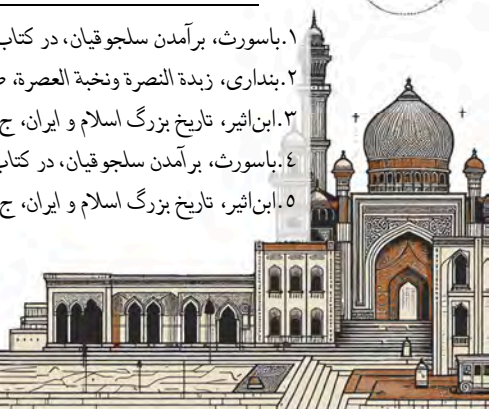 ۱.باسورث، برآمدن سلجوقیان، در کتاب
۲.بنداری، زبدة النصرة ونخبة العصرة،
۳.ابن‌اثیر، تاریخ بزرگ اسلام و ایران، ج
٤.باسورث، برآمدن سلجوقیان، در کتاب
٥.ابن‌اثیر، تاریخ بزرگ اسلام و ایران، ج